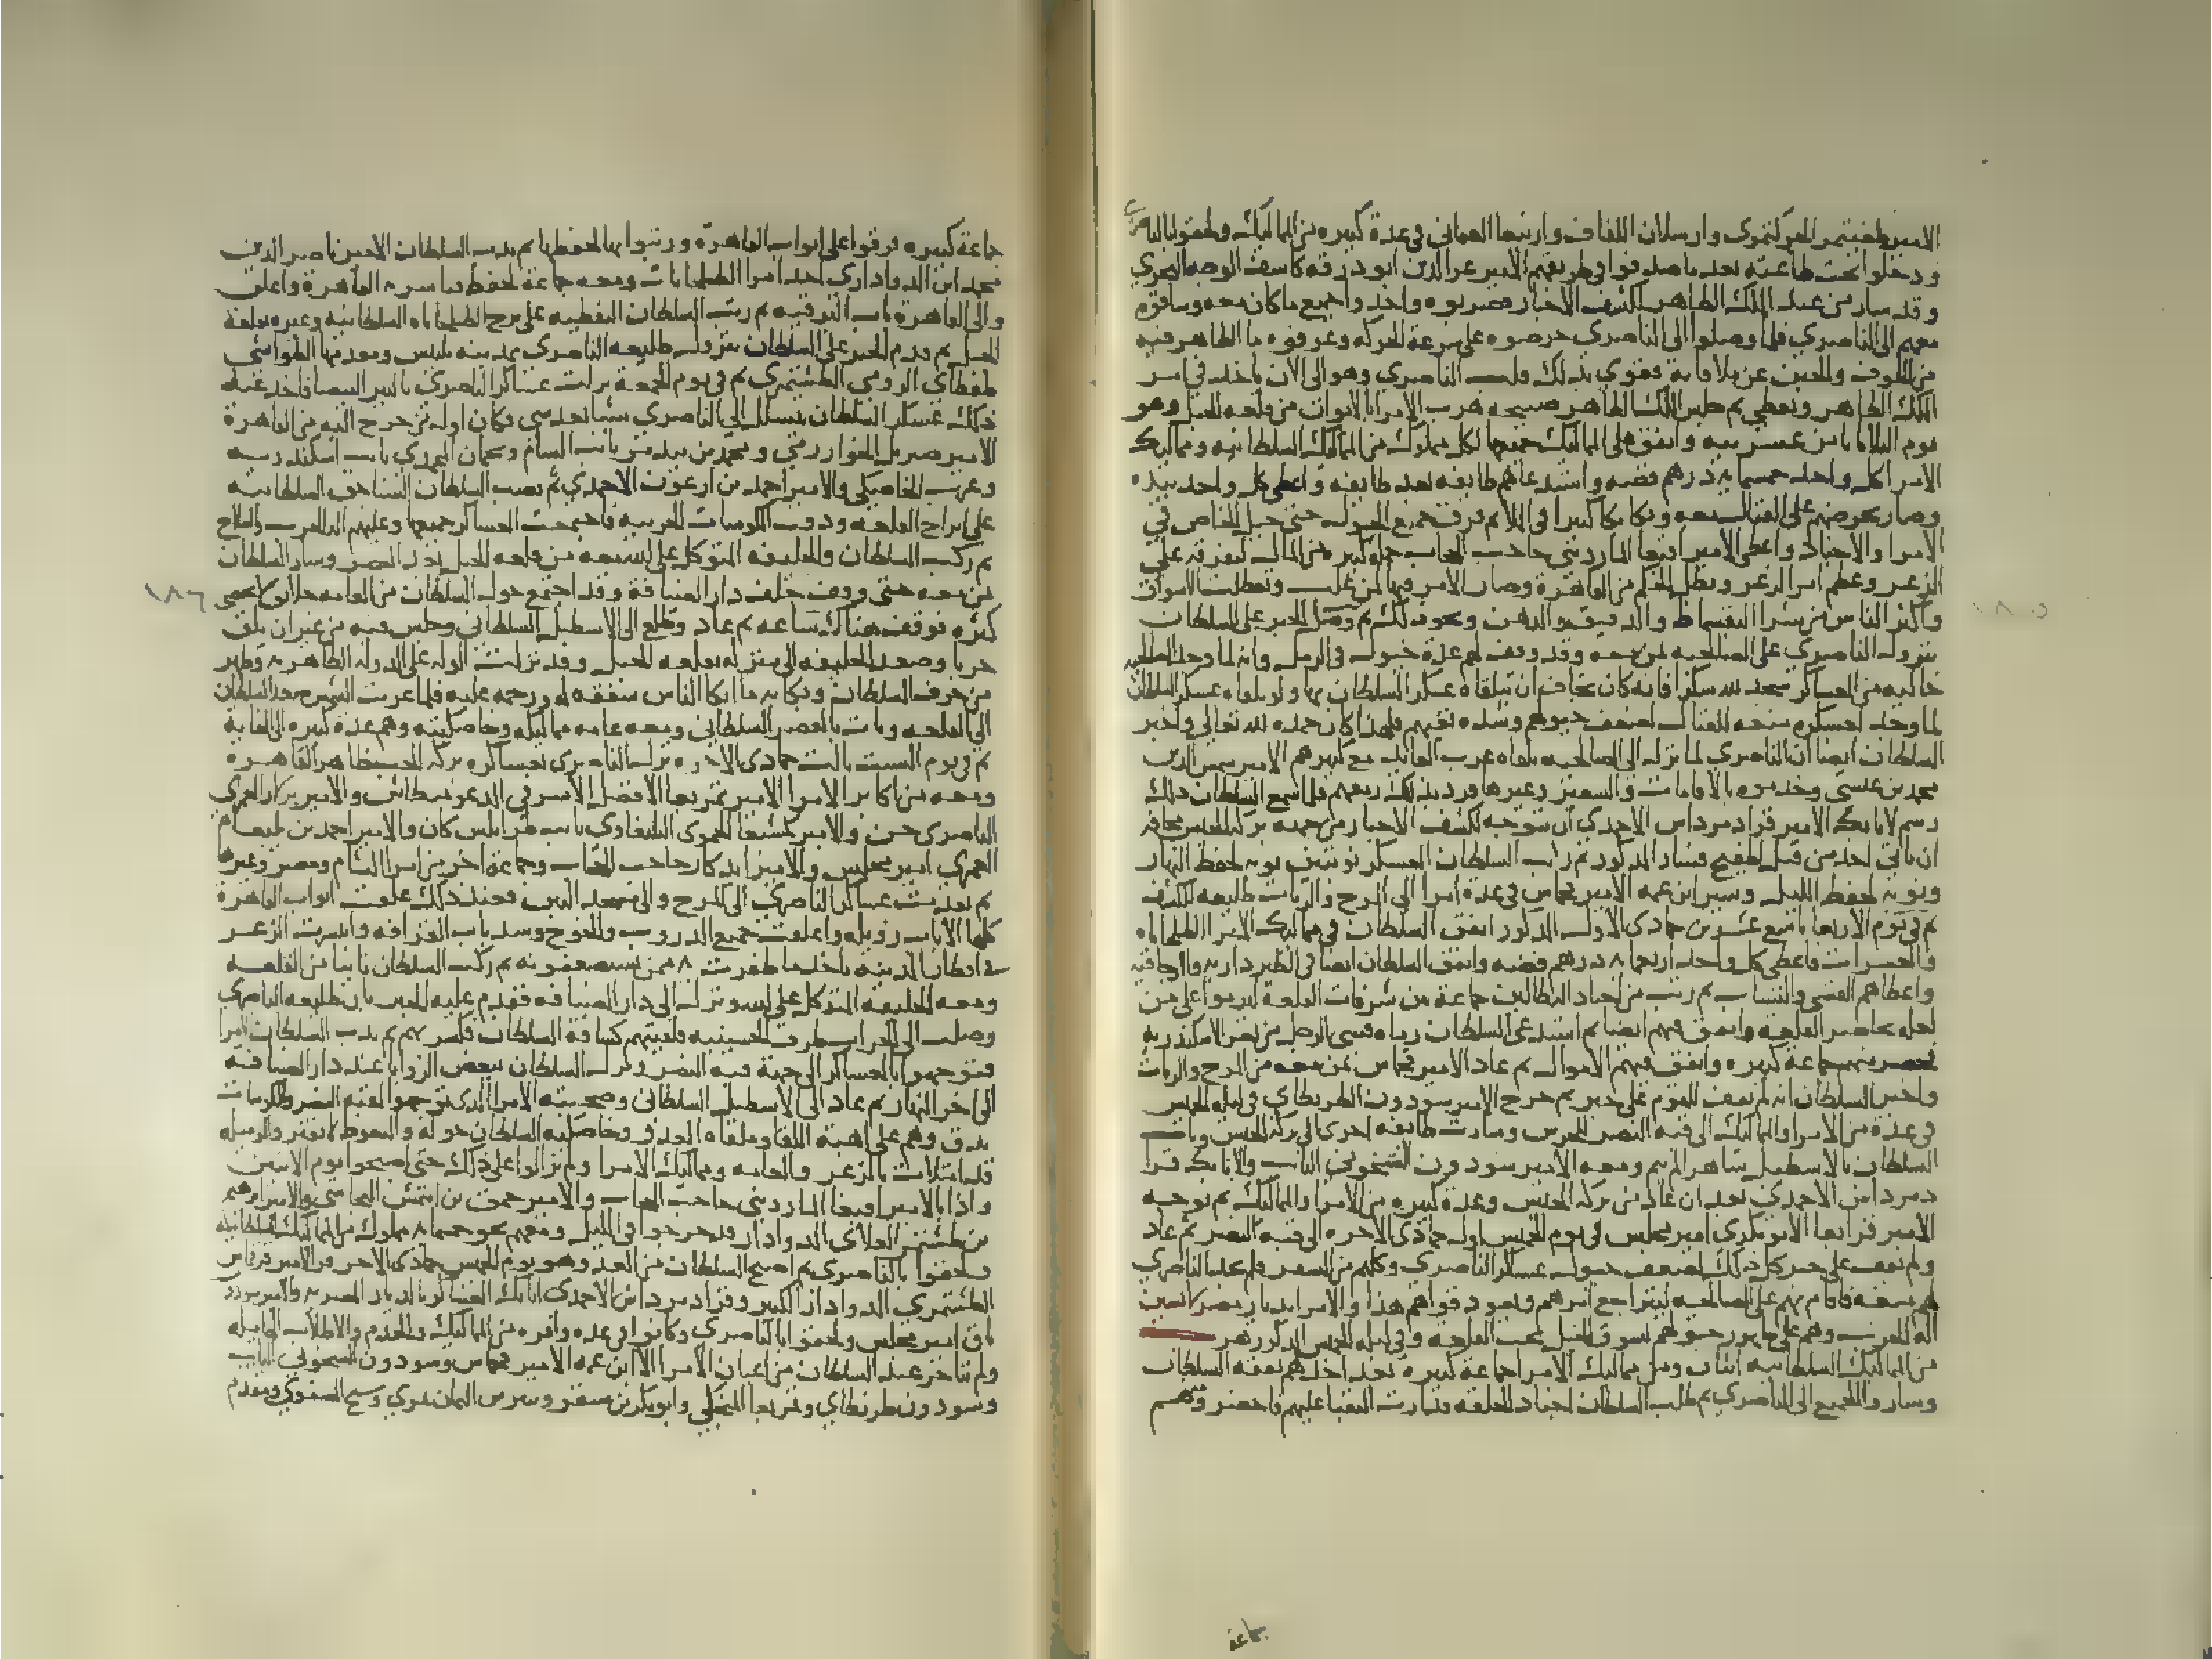 الامير طغيتمر الجركتمرى وارسلان اللفاف واربغا العثماني في عدة كبيره من المماليك ولحقوا بالناصري
ودخلوا تحت طاعته بعد ما صدفوا في طريقهم الامير عز الدين ابو درقه كاشف الوجه البحري
وقد سار من عند الملك الظاهر لكشف الاخبار فضربوه واخذوا جميع ما كان معه وساقوه
معهم الى الناصري فلما وصلوا الى الناصري حرضوه على سرعة الحركه وعرفوه ما الظاهر فيه
من الخوف والجبن عن ملاقاته فقوي بذلك قلب الناصري وهو الى الان ياخذ في امر
الملك الظاهر ويعطي ثم جلس الملك الظاهر صبيحه هرب الامرا بالايوان من قلعه الجبل وهو
يوم الثلاثا ثامن عشرينه وانفق على المماليك جميعها لكل مملوك من المماليك السلطانيه ومماليك
الامرا كل واحد خمسمايه درهم فضه واستدعاهم طايفه بعد طايفه واعطى كل واحد بيده
وصار يحرضهم على القتال معه وبكا بكا كثيرا في الملا ثم فرق جميع الخيول حتى خيل الخاص في
الامرا والاجناد واعطى الامير اقبغا المارديني حاجب الحجاب جملة كبيره من المال ليفرقه على
الزعر وعظم امر الزعر وبطل الحكم من القاهرة وصار الامر فيها لمن غلب وتعطلت الاسواق
واكثر الناس من شرا البقسماط والدقيق والدهن ونحو ذلك ثم وصل الخبر على السلطان
بنزول الناصري على الصالحيه بمن معه وقد وقف لهم عدة خيول في الرمل وانه لما وجد الصالحيه
خاليه من العساكر سجد لله شكرا فانه كان يخاف ان يتلقاه عسكر السلطان بها ولو تلقاه عسكر السلطان
لما وجد لعسكره منعه للقتال لضعف خيولهم وشده تعبهم فلهذا كان حمده لله تعالى واخبر
السلطان ايضا ان الناصري لما نزل الى الصالحيه تلقاه عرب العايد مع كبيرهم الامير شمس الدين
محمد بن عيسى وخدموه بالاقامات والشعير وغيرها فرد بذلك رمقهم فلما سمع السلطان ذلك
رسم لاتابكه الامير قرا دمرداش الاحمدي ان يتوجه لكشف الاخبار من جهه بركه الحبش مخافه
ان ياتي احد من قبل اطفيح فسار المذكور ثم رتب السلطان العسكر نوبتين نوبه لحفظ النهار
ونوبه لحفظ الليل وسير ابن عمه الامير قجماس في عدة امرا الى المرج والزيات طليعه للكشف
ثم في يوم الاربعا تاسع عشرين جمادى الاولى المذكور انفق السلطان في مماليك الامرا الطبلخاناه
والعشرات فاعطى كل واحد اربعمايه درهم فضه وانفق السلطان ايضا في الطبرداريه والاوجاقيه
واعطاهم القسي والنشاب ثم رتب من اجناد البطالين جماعة من شرفات القلعة ليرموا على من
لعله يحاصر القلعه وانفق فيهم ايضا ثم استدعى السلطان رماه قسي الرجل من ثغر الاسكندريه
فحضر منهم جماعة كبيره وانفق فيهم الاموال ثم عاد الامير قجماس بمن معه من المرج والزيات
واخبر السلطان انه لم يقف للقوم على خبر ثم خرج الامير سودون الطرنطاي في ليله الخميس
في عدة من الامرا والمماليك الى قبه النصر للحرس وسارت طايفه اخرى الى بركه الحبش وبات
السلطان بالاسطبل ساهرا لم ينم ومعه الامير سودون الشيخوني النايب والاتابك قرا
دمرداش الاحمدي بعد ان عاد من بركه الحبش وعدة كبيره من الامرا والمماليك ثم توجه
الامير قرابغا الابوبكري امير مجلس في يوم الخميس اول جمادى الاخره الى قبه النصر ثم عاد
ولم يقف على خبر كل ذلك لضعف خيول عساكر الناصري وكلهم من السفر فلم يجد الناصري
لهم منعه فاقام بهم على الصالحيه ليتراجع امرهم وتعود قواهم هذا والامرا بديار مصر لابسين
اله الحرب وهم على ظهور خيولهم بسوق الخيل تحت القلعه وفي ليله الخميس المذكور هرب
من المماليك السلطانيه اثنان ومن مماليك الامرا جماعة كبيره بعد اخذهم نفقه السلطان
وساروا الجميع الى الناصري ثم طلب السلطان اجناد الحلقه فدارت النقبا عليهم فاحضر منهم
جماعة
١٨٥
جماعة كبيره فرقوا على ابواب القاهرة ورتبوا بها لحفظها ثم ندب السلطان الامير ناصر الدين
محمد ابن الدواداري احد امرا الطبلخانات ومعه جماعة لحفظ قياسر القاهرة واغلق
والى القاهرة باب البرقيه ثم رتب السلطان النفطيه على برج الطبلخاناه السلطانيه وغيره بقلعة
الجبل ثم قدم الخبر على السلطان بنزول طليعه الناصري بمدينه بلبيس ومقدمها الطواشي
طقطاي الرومي الطشتمري ثم في يوم الجمعة نزلت عساكر الناصري بالبير البيضا فاخذ عند
ذلك عسكر السلطان يتسلل الى الناصري شيئا بعد شى وكان اول من خرج اليه من القاهرة
الامير جبريل الخوارزمي ومحمد بن بيدمر نايب الشام وبجمان المحمدي نايب اسكندريه
وغريب الخاصكي والامير احمد بن ارغون الاحمدي ثم نصب السلطان السناجق السلطانيه
على ابراج القلعه ودقت الكوسات الحربيه فاجتمعت العساكر جميعها وعليهم اله الحرب والسلاح
ثم ركب السلطان والخليفه المتوكل على الله معه من قلعه الجبل بعد العصر وسار السلطان
بمن معه حتى وقف خلف دار الضيافة وقد اجتمع حول السلطان من العامه خلايق لا تحصى
كثره فوقف هناك ساعه ثم عاد وطلع الى الاسطبل السلطاني وجلس فيه من غير ان يلقى
حربا وصعد الخليفه الى منزله بقلعه الجبل وقد نزلت الذله على الدوله الظاهريه وظهر
من خوف السلطان وبكايه ما ابكا الناس شفقه له ورحمه عليه فلما غربت الشمس صعد السلطان
الى القلعه وبات بالقصر السلطاني ومعه عامه مماليكه وخاصكيته وهم عدة كبيره الى الغايه
ثم في يوم السبت ثالث جمادى الاخره نزل الناصري بعساكره بركه الجب ظاهر القاهره
ومعه من اكابر الامرا الامير تمربغا الافضلي الاشرفي المدعو منطاش والامير بزلار العمري
الناصري حسن والامير كمشبغا الحموي اليلبغاوي نايب طرابلس كان والامير احمد بن يلبغا
العمري امير مجلس والامير ايدكار حاجب الحجاب وجماعة اخر من امرا الشام ومصر وغيرها
ثم تقدمت عساكر الناصري الى المرج والى مسجد التبن فعند ذلك غلقت ابواب القاهرة
كلها الا باب زويله واغلقت جميع الدروب والخوخ وسد باب القرافه وانتشرت الزعر
في اقطار المدينه تاخذ ما ظفرت به ممن يستضعفونه ثم ركب السلطان ثانيا من القلعه
ومعه الخليفه المتوكل على الله ونزل الى دار الضيافه فقدم عليه الخبر بان طليعه الناصري
وصلت الى الخراب طرف الحسينيه فلقيتهم كشافة السلطان فكسرتهم ثم ندب السلطان الامرا
فتوجهوا بالعساكر الى جهة قبه النصر ونزل السلطان ببعض الزوايا عند دار الضيافه
الى اخر النهار ثم عاد الى الاسطبل السلطاني وصحبته الامرا الذى توجهوا لقبه النصر والكوسات
تدق وهم على اهبة اللقا وملاقاه العدو وخاصكيه السلطان حوله والنفوط لا تفتر والرميله
قد امتلات بالزعر والعامه ومماليك الامرا ولم يزالوا على ذلك حتى اصبحوا يوم الاثنين
واذا بالامير اقبغا المارديني حاجب الحجاب والامير جمق بن ايتمش البجاسي والامير ابرهيم
بن طشتمر العلاى الدوادار قد خرجوا في الليل ومعهم نحو خمسمايه مملوك من المماليك السلطانيه
ولحقوا بالناصري ثم اصبح السلطان من الغد وهو يوم خامس جمادى الاخر فر الامير قرقماس
الطشتمري الدوادار الكبير وقرا دمرداش الاحمدى اتابك العساكر بالديار المصريه والامير سودون
باق امير مجلس ولحقوا بالناصري وكانوا في عده وافره من المماليك والخدم والاطلاب الهايله
ولم يتاخر عند السلطان من اعيان الامرا الا ابن عمه الامير قجماس وسودون الشيخوني النايب
وسودون طرنطاي وتمربغا المنجكي وابو بكر بن سنقر وبيبرس التمان تمري وشيخ الصفوي ومقدم
١٨٦